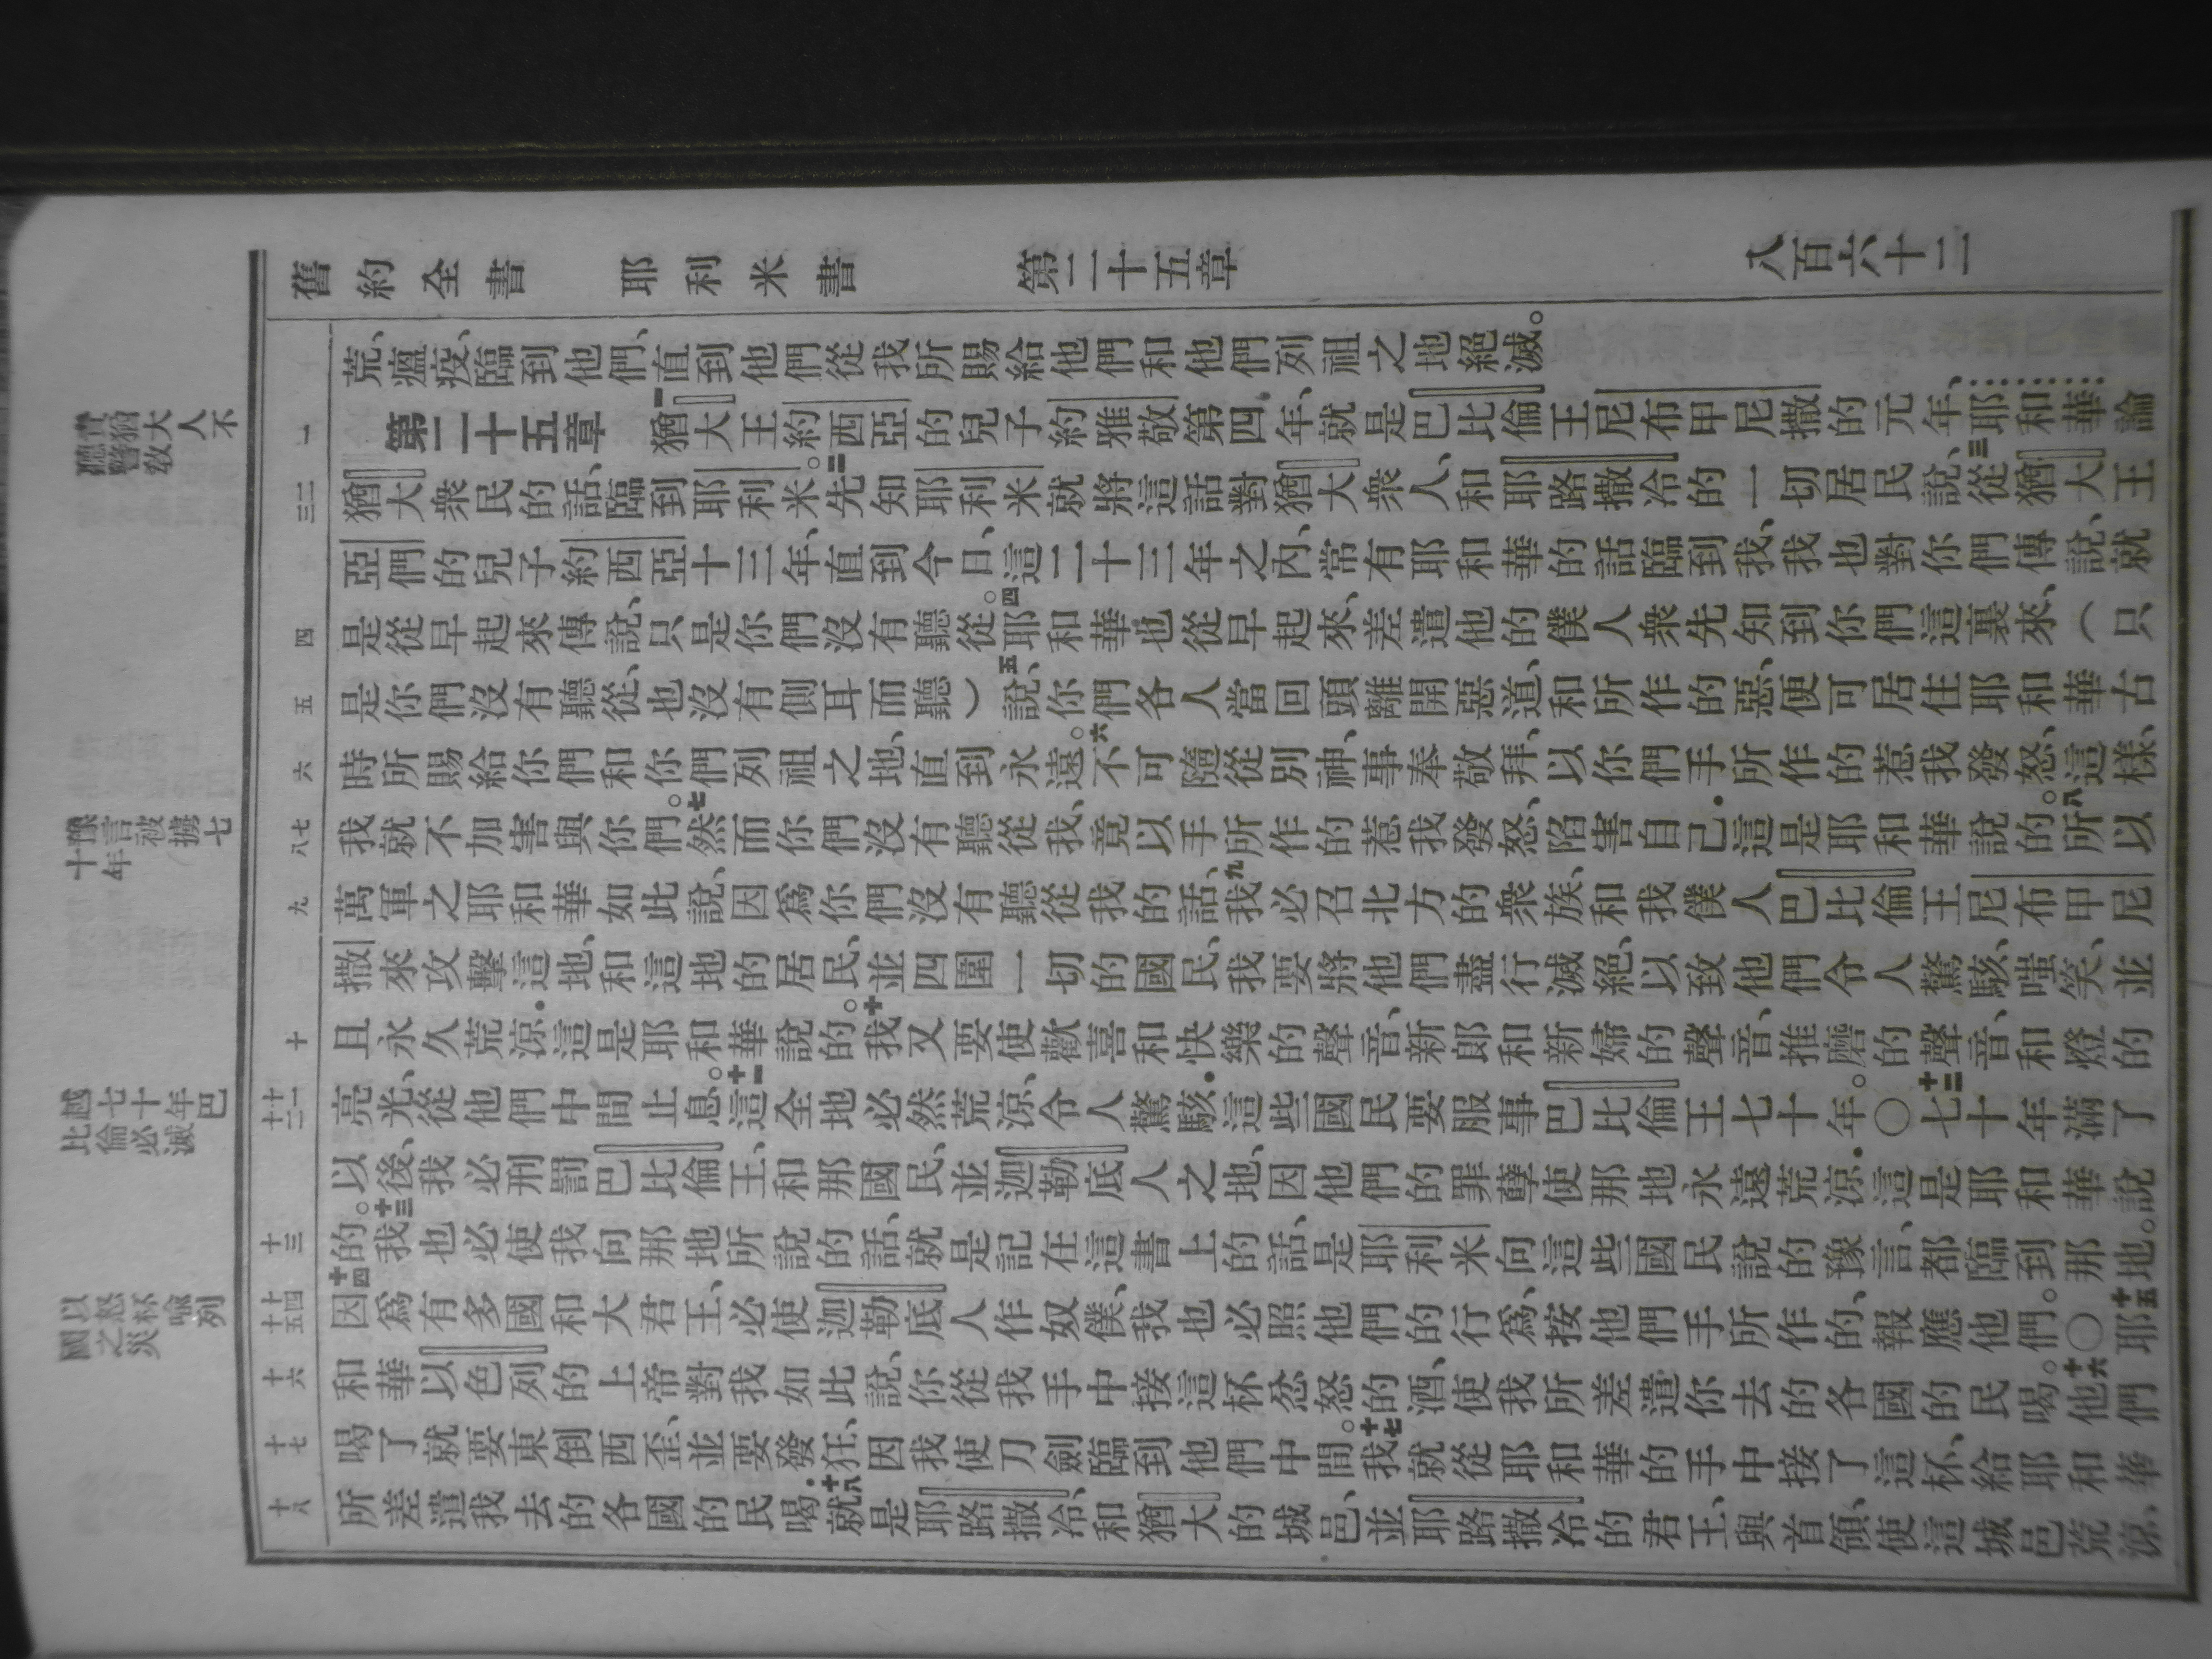 舊約全書 耶利米書 第二十五章 八百六十二
責猶大人不
聽警教
豫言被擄七
十年
越七十年巴
比倫必滅
以怒杯喻列
國之災
一
二三
四
五
六
七八
九
十
十一十二
十三
十四十五
十六
十七
十八
荒、瘟疫、臨到他們、直到他們從我所賜給他們和他們列祖之地絕滅。
第二十五章 一猶大王約西亞的兒子約雅敬第四年、就是巴比倫王尼布甲尼撒的元年、耶和華論
猶大衆民的話、臨到耶利米。二先知耶利米就將這話對猶大衆人、和耶路撒冷的一切居民說、三從猶大王
亞們的兒子約西亞十三年、直到今日、這二十三年之內、常有耶和華的話臨到我、我也對你們傳說、就
是從早起來傳說、只是你們沒有聽從。四耶和華也從早起來、差遣他的僕人衆先知到你們這裏來、(只
是你們沒有聽從、也沒有側耳而聽)五說、你們各人當回頭離開惡道、和所作的惡、便可居住耶和華古
時所賜給你們和你們列祖之地、直到永遠。六不可隨從別神、事奉敬拜、以你們手所作的惹我發怒、這樣、
我就不加害與你們。七然而你們沒有聽從我、竟以手所作的惹我發怒、陷害自己．這是耶和華說的。八所以
萬軍之耶和華如此說、因爲你們沒有聽從我的話、九我必召北方的衆族、和我僕人巴比倫王尼布甲尼
撒來攻擊這地、和這地的居民、並四圍一切的國民、我要將他們盡行滅絕、以致他們令人驚駭、嗤笑、並
且永久荒涼．這是耶和華說的。十我又要使歡喜和快樂的聲音、新郎和新婦的聲音、推磨的聲音、和燈的
亮光、從他們中間止息。十一這全地必然荒涼、令人驚駭．這些國民要服事巴比倫王七十年。○十二七十年滿了
以後、我必刑罰巴比倫王、和那國民、並迦勒底人之地、因他們的罪孽使那地永遠荒涼．這是耶和華說
的。十三我也必使我向那地所說的話、就是記在這書上的話、是耶利米向這些國民說的豫言、都臨到那地。
十四因爲有多國和大君王、必使迦勒底人作奴僕、我也必照他們的行爲、按他們手所作的、報應他們。○十五耶
和華以色列的上帝對我如此說、你從我手中接這杯忿怒的酒、使我所差遣你去的各國的民喝。十六他們
喝了就要東倒西歪、並要發狂、因我使刀劍臨到他們中間。十七我就從耶和華的手中接了這杯、給耶和華
所差遣我去的各國的民喝．十八就是耶路撒冷、和猶大的城邑、並耶路撒冷的君王、與首領、使這城邑荒涼、